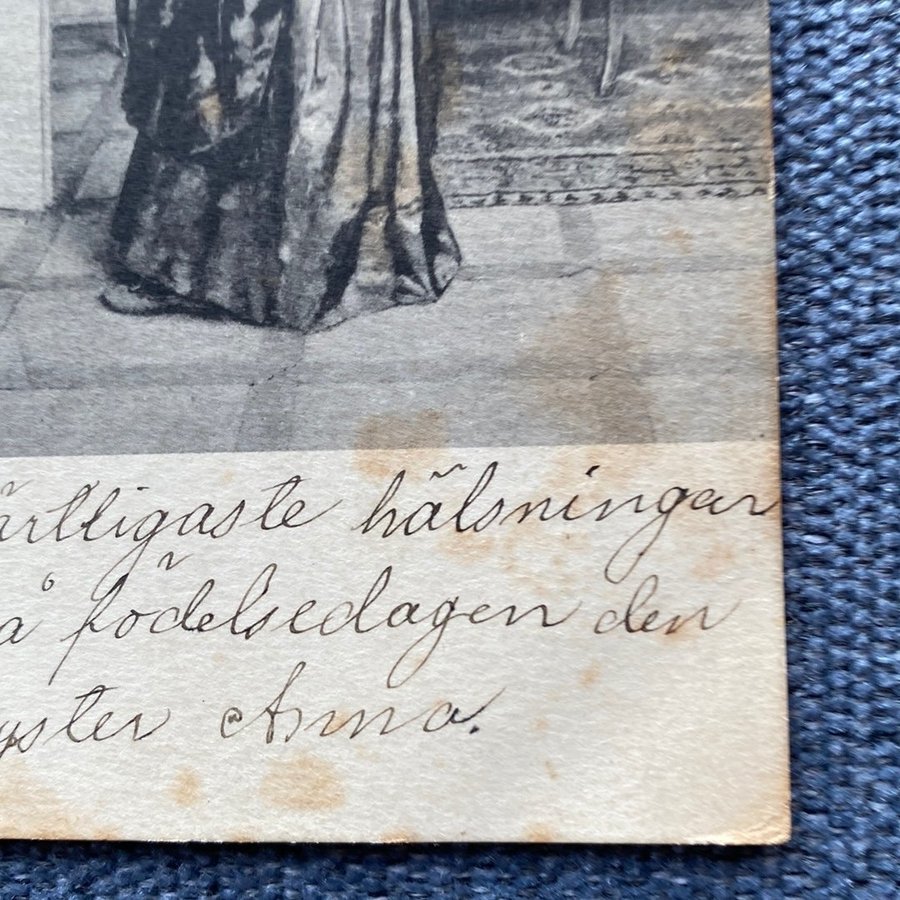 ärtligaste hälsningar
å födelsedagen den
yster Anna.